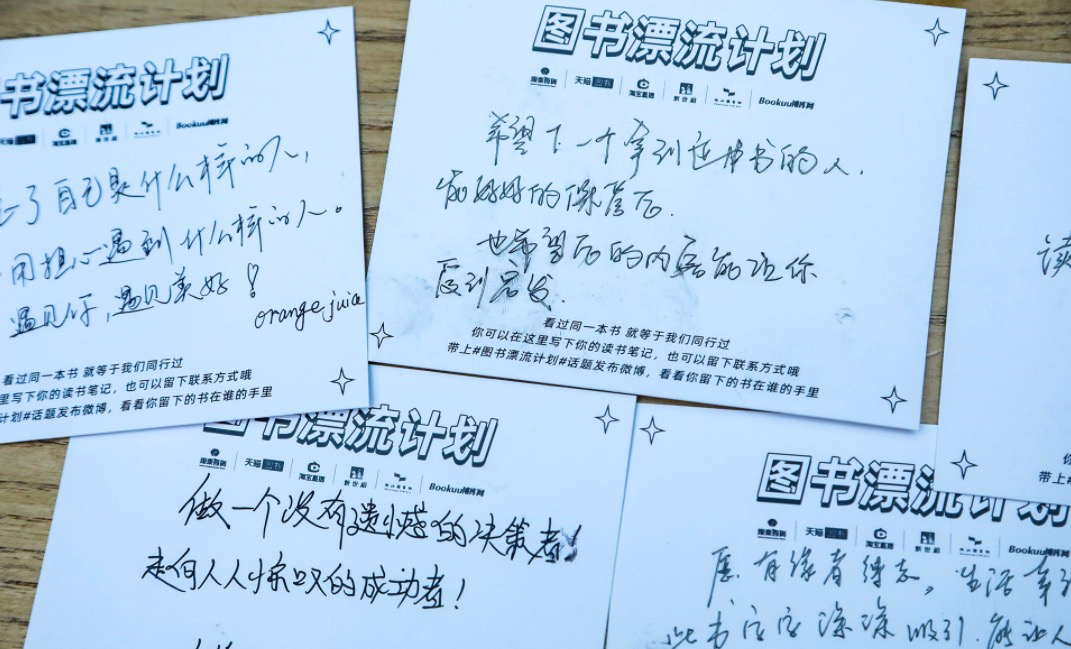 书漂流计划
天猫
淘宝直播
新世相
Bookuu博库网
了自己是什么样的人，
用担心遇到什么样的人。
遇见你，遇见美好！
orange juice
看过同一本书 就等于我们同行过
里写下你的读书笔记，也可以留下联系方式哦
计划#话题发布微博，看看你留下的书在谁的手里
图书漂流计划
天猫
淘宝直播
新世相
Bookuu博库网
希望下一个拿到这本书的人，
能好好的保管
也希望 的内容能让你
受到启发.
看过同一本书 就等于我们同行过
你可以在这里写下你的读书笔记，也可以留下联系方式哦
带上#图书漂流计划#话题发布微博，看看你留下的书在谁的手里
读
你
带上#
图书漂流计划
天猫
淘宝直播
新世相
Bookuu博库网
做一个没有遗憾的决策者！
走向人人惊叹的成功者！
图书漂流计划
天猫
淘宝直播
新世相
Bookuu博库网
愿有缘者得之。生活幸
此书 深深吸引.能让人